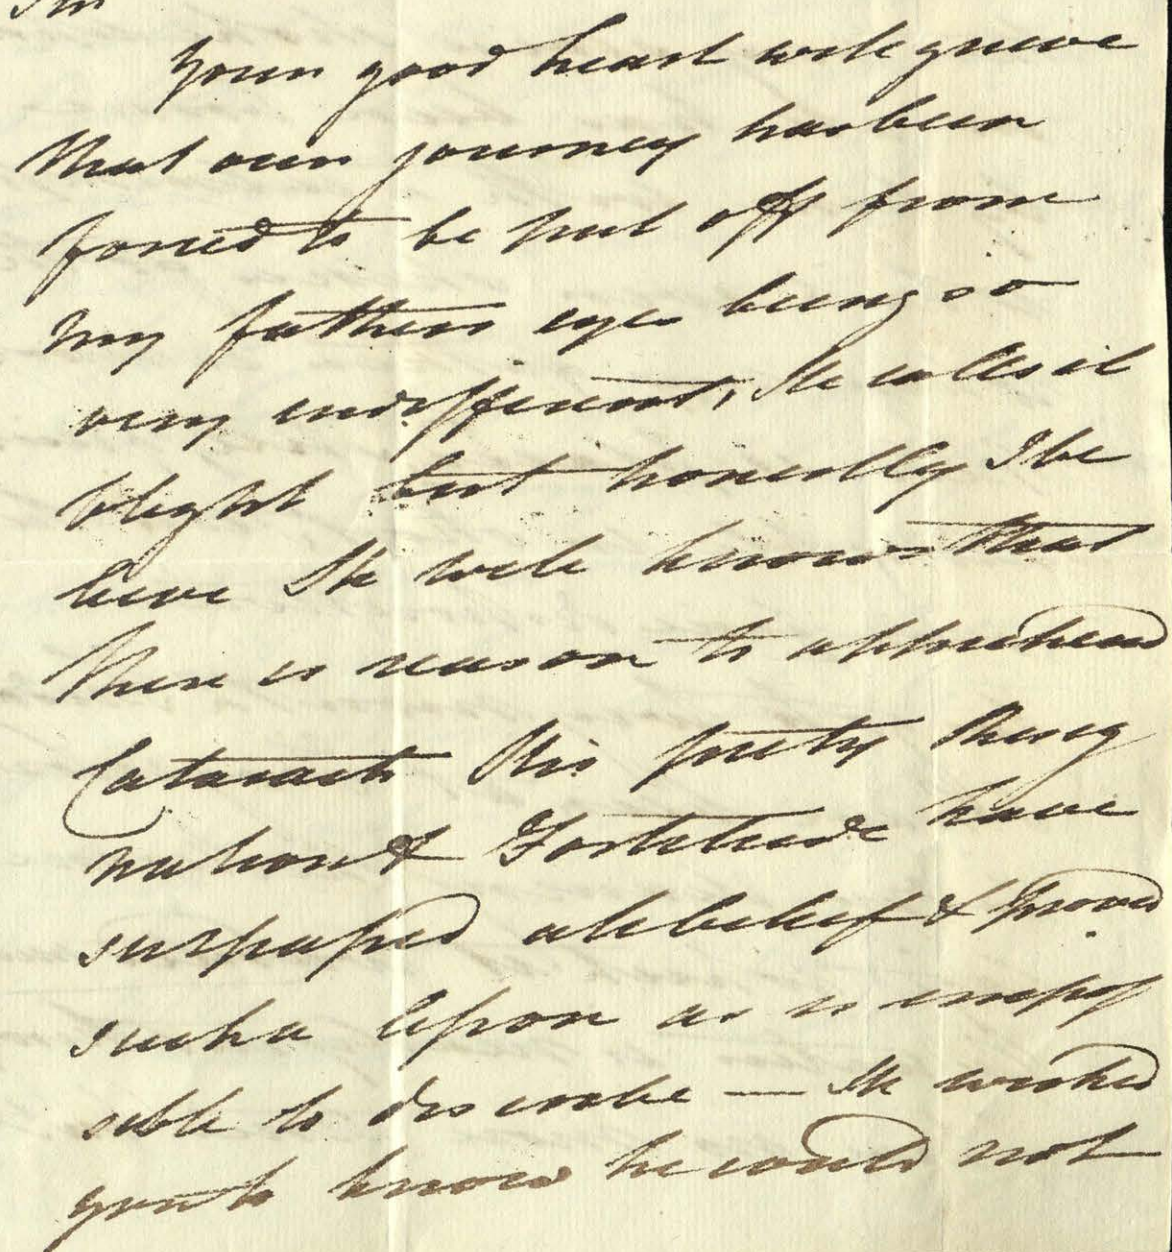 Sir
Your good heart will grieve
that our journey has been
forced to be put off from
my fathers eyes being so
very indifferent, He calls it
blight but honestly I be
lieve He well knows that
there is reason to apprehend
Cataracts His piety Resig
nation & Fortitude have
surpassed all belief & proved
such a lesson as is impos
sible to describe — He wished
you to know he would not